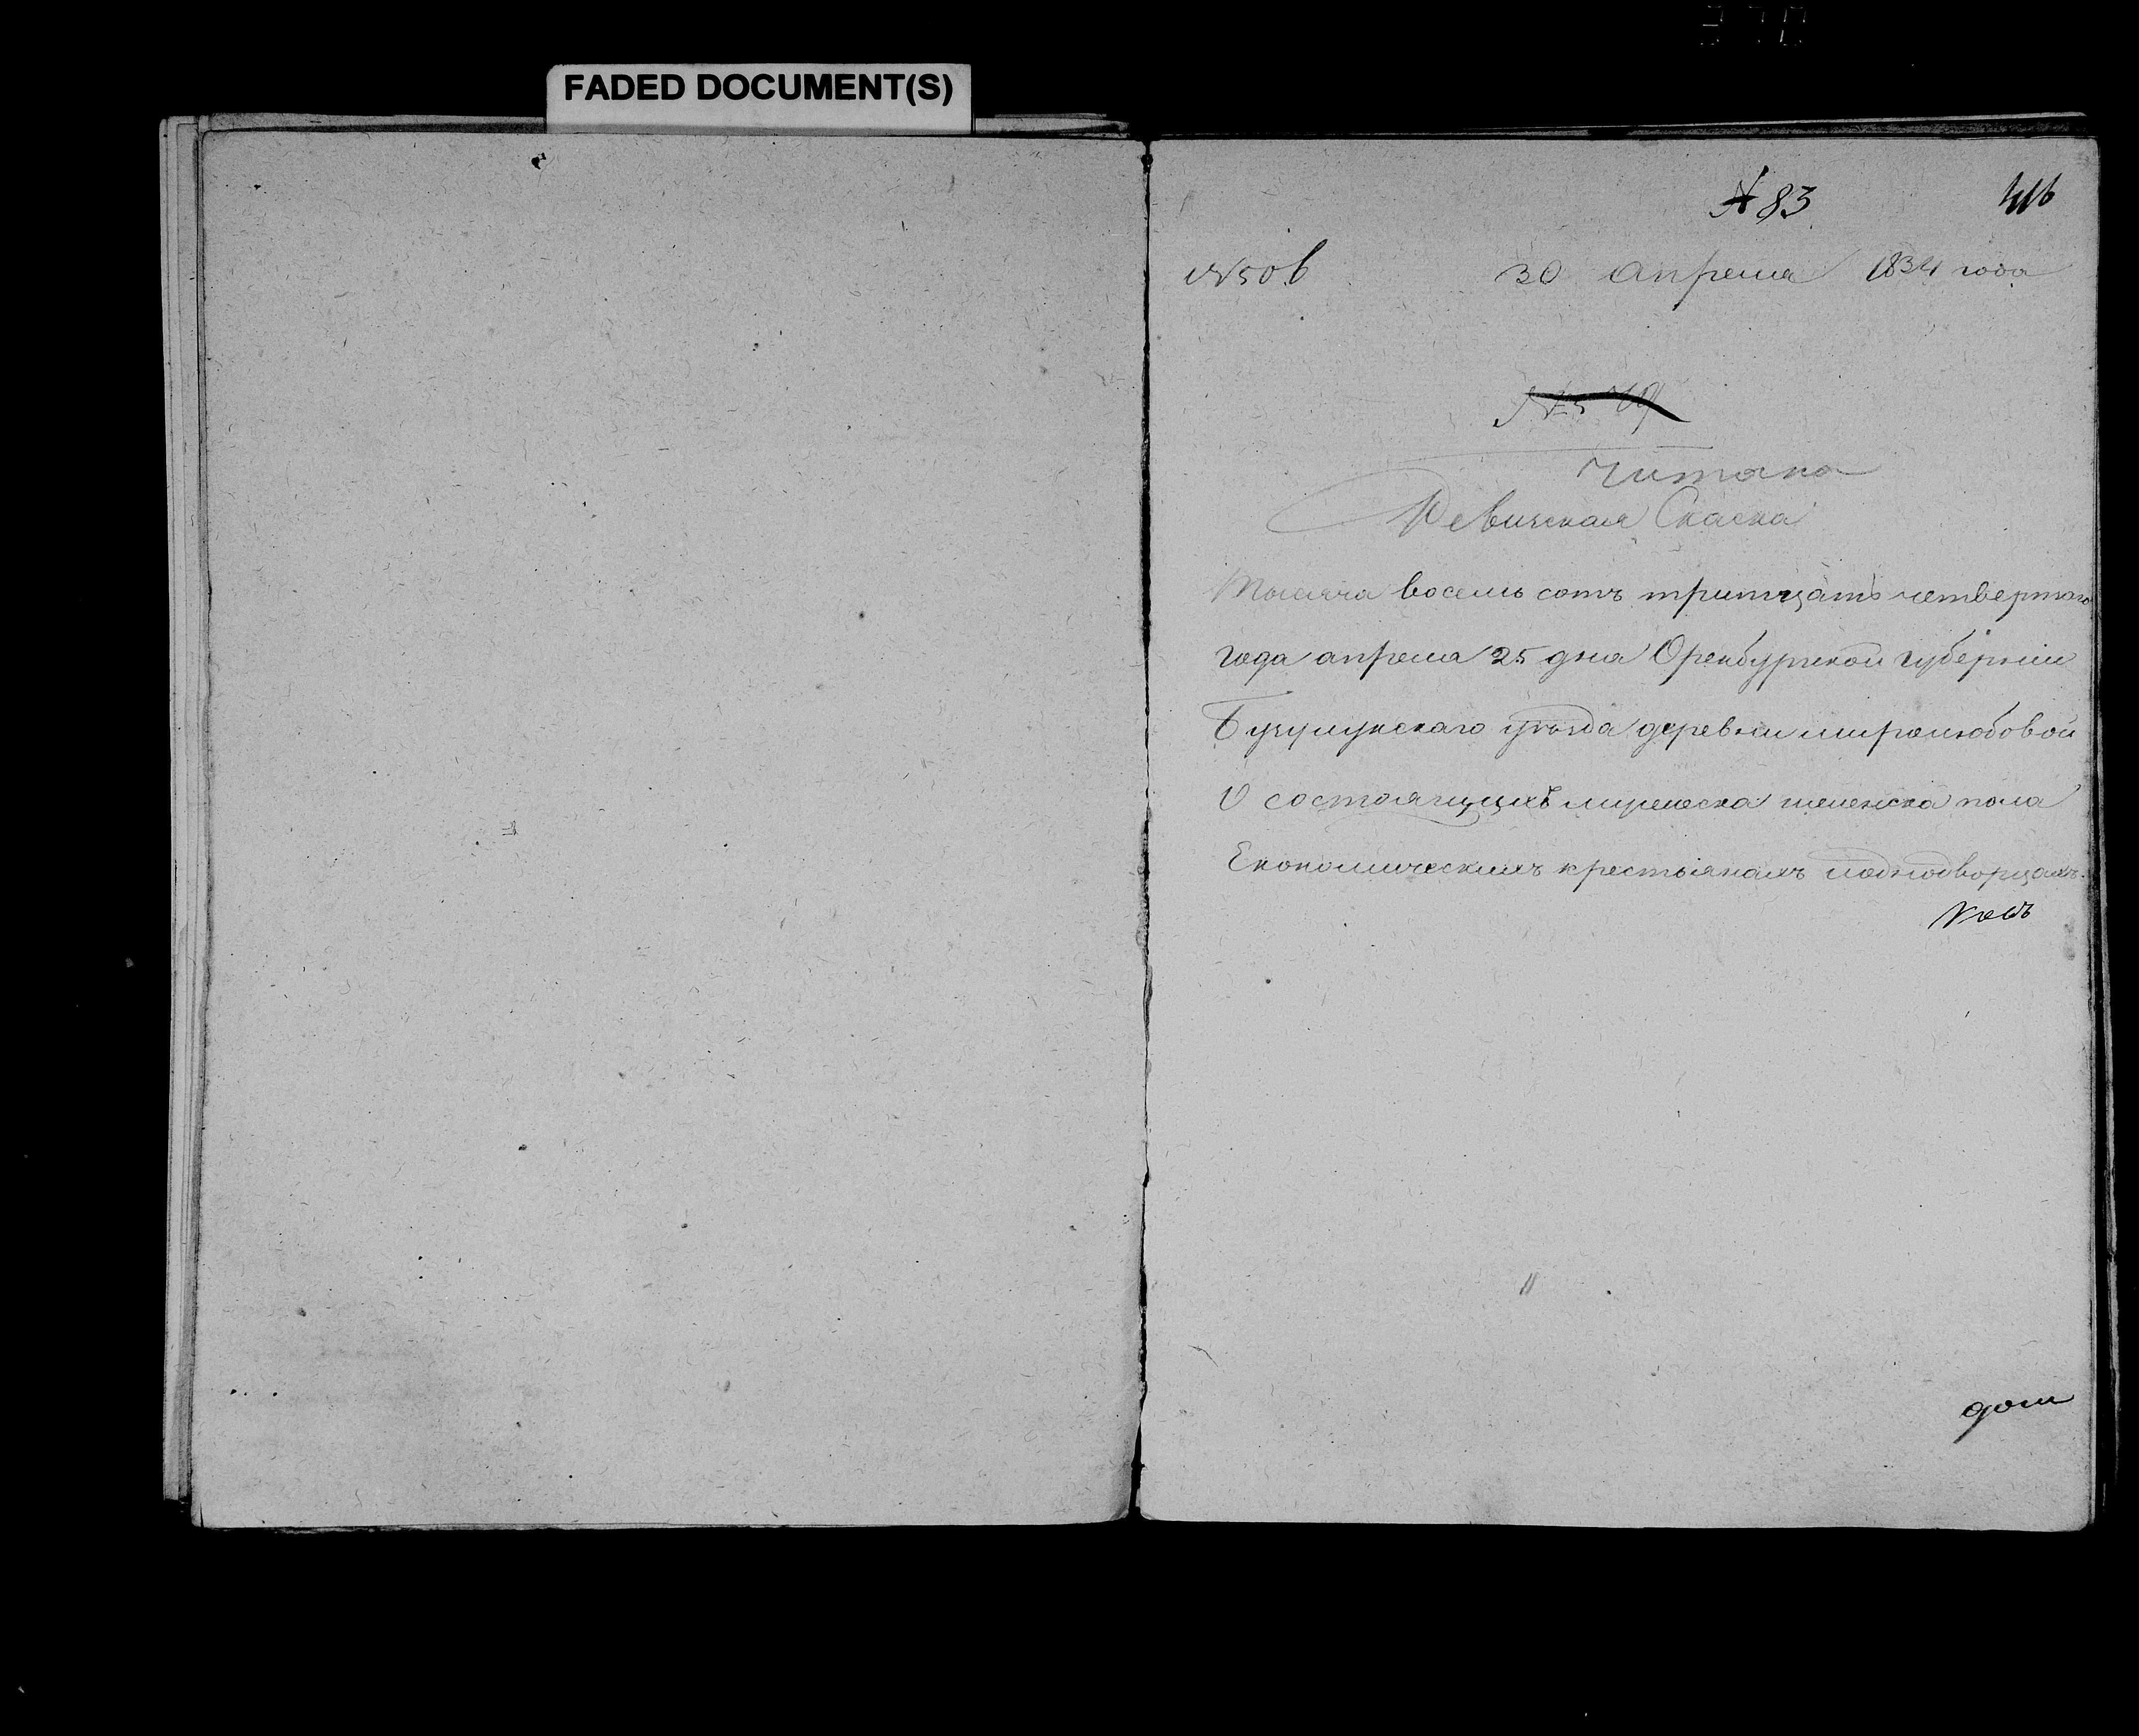 FADED DOCUMENT(S)
№ 83
416
№ 506 30 апреля 1834 года
Читана
Ревиская Скаска
Тысяча восемь сотъ тритцать четвертого
года апреля 25 дня Оренбургской губернии
Бузулунскаго уѣзда деревни миролюбовой
О состоящихъ мужеска женска пола
Економическихъ крестьянахъ